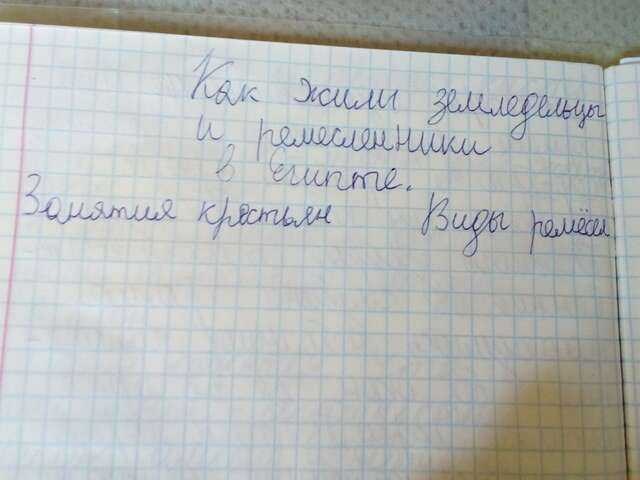 Как жили земледельцы
и ремесленники
в Египте.
Занятия крестьян Виды ремёсел